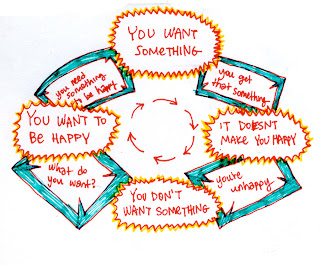 YOU WANT
SOMETHING
you get
that something
IT DOESNT
MAKE YOU HAPPY
you're
unhappy
YOU DON'T
WANT SOMETHING
what do
you want?
YOU WANT TO
BE HAPPY
you need
something
to be happy